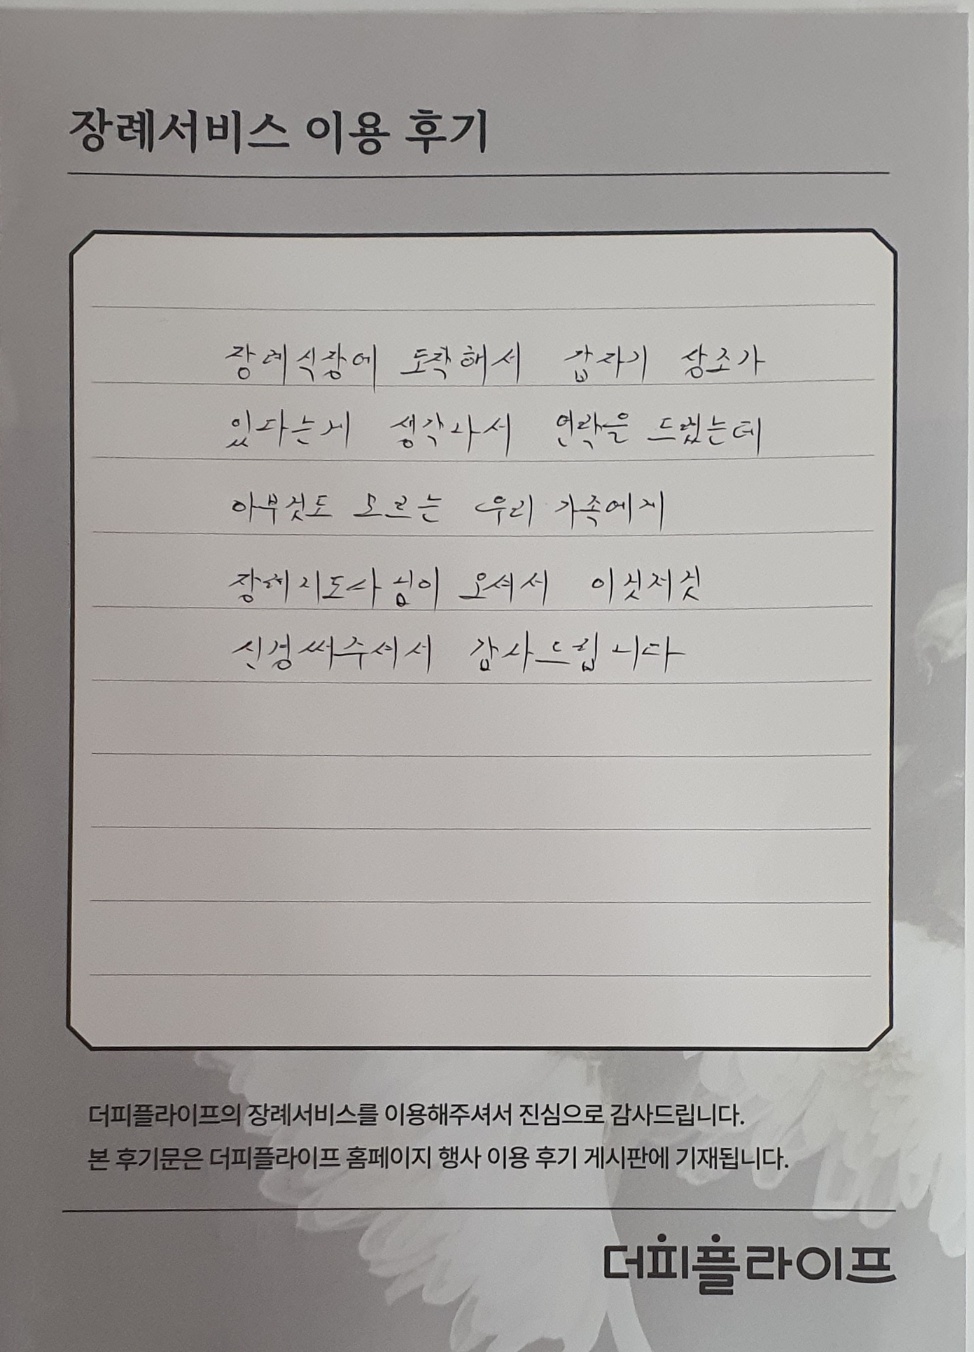 장례서비스 이용 후기
장례식장에 도착해서 갑자기 상조가
있다는게 생각나서 연락을 드렸는데
아무것도 모르는 우리 가족에게
장례지도사님이 오셔서 이것저것
신경써주셔서 감사드립니다
더피플라이프의 장례서비스를 이용해주셔서 진심으로 감사드립니다.
본 후기문은 더피플라이프 홈페이지 행사 이용 후기 게시판에 기재됩니다.
더피플라이프